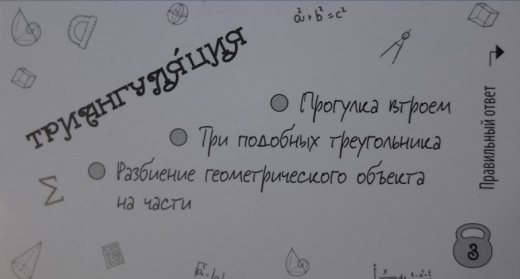 a² + b² = c²
ТРИАНГУЛЯ́ЦИЯ
Прогулка втроем
Три подобных треугольника
Разбиение геометрического объекта
на части
Правильный ответ
Σ
3